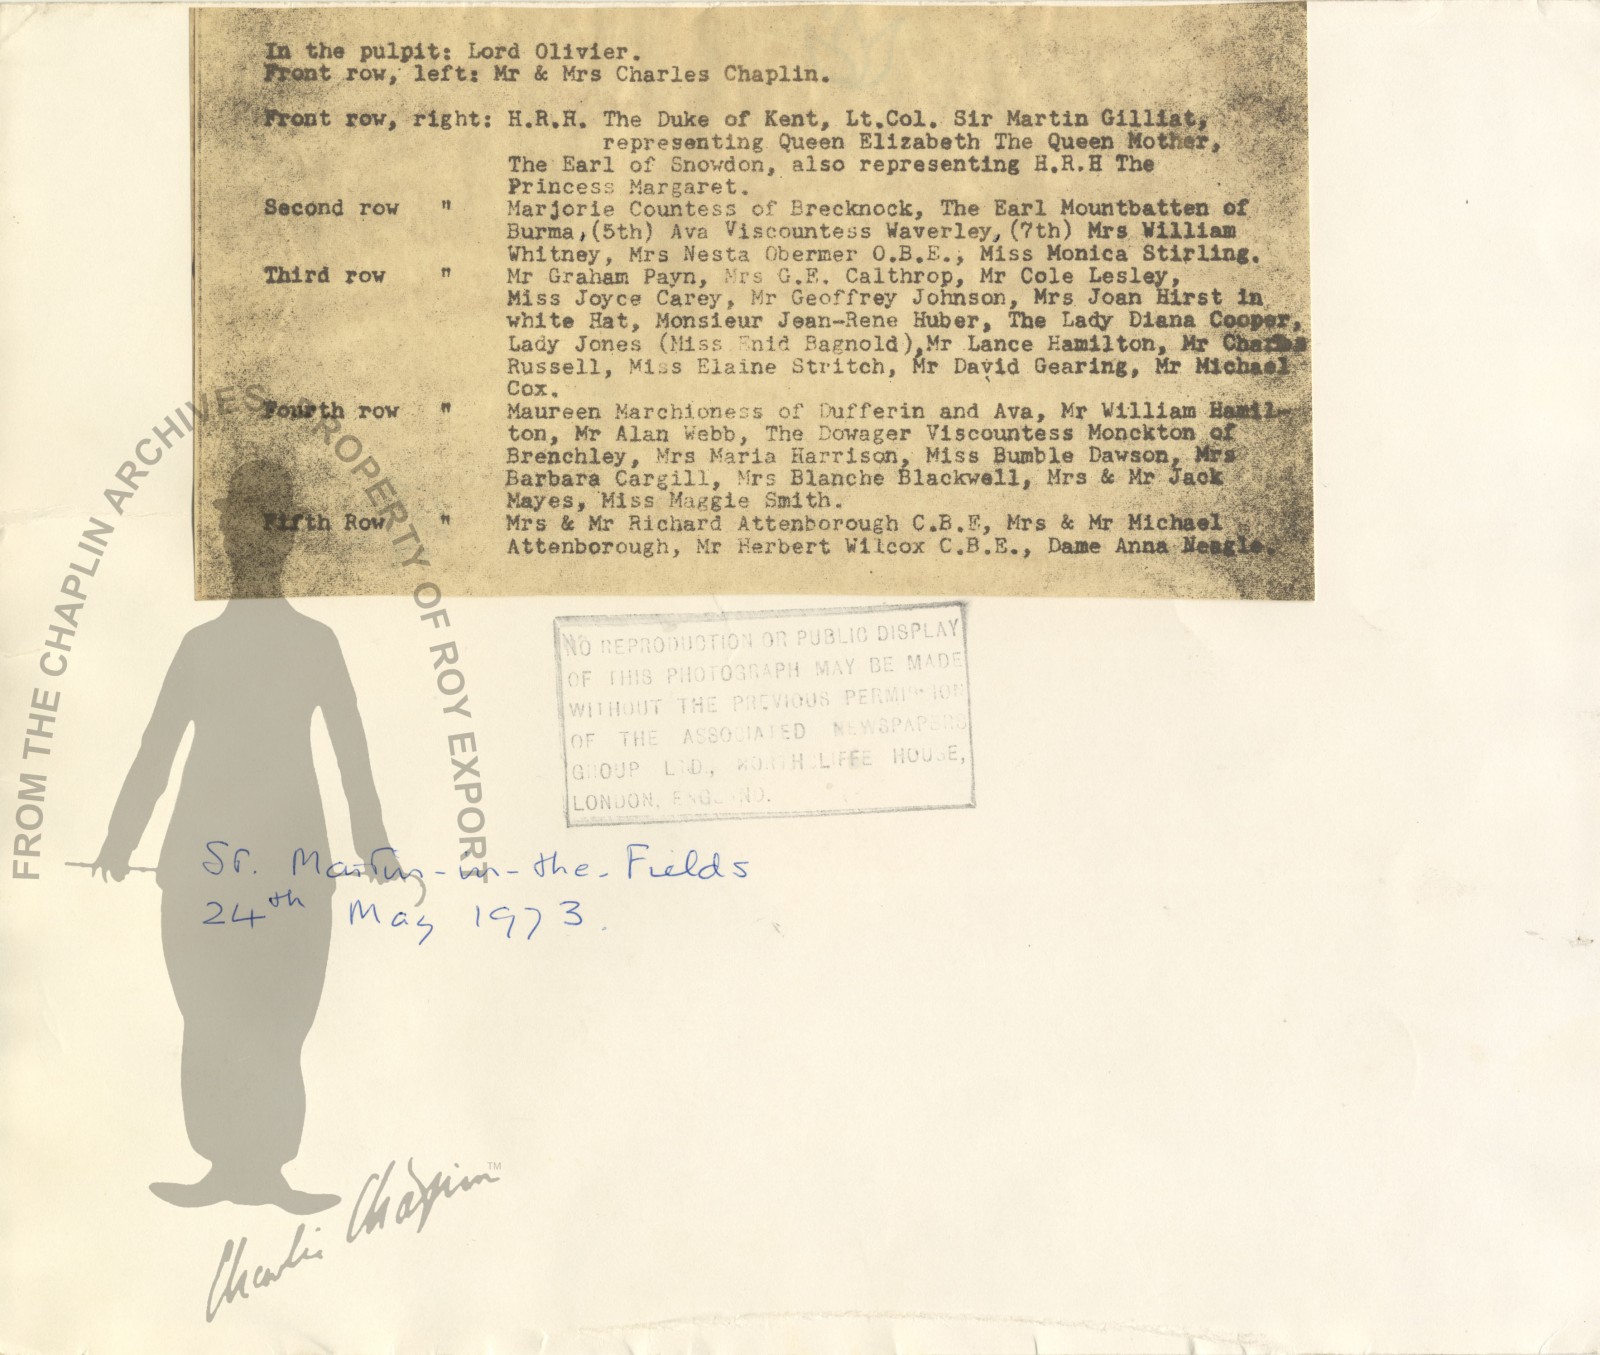 In the pulpit: Lord Olivier.
Front row, left: Mr & Mrs Charles Chaplin.
Front row, right: H.R.H. The Duke of Kent, Lt.Col. Sir Martin Gilliat,
representing Queen Elizabeth The Queen Mother,
The Earl of Snowdon, also representing H.R.H The
Princess Margaret.
Second row " Marjorie Countess of Brecknock, The Earl Mountbatten of
Burma,(5th) Ava Viscountess Waverley,(7th) Mrs William
Whitney, Mrs Nesta Obermer O.B.E., Miss Monica Stirling.
Third row " Mr Graham Payn, Mrs G.E. Calthrop, Mr Cole Lesley,
Miss Joyce Carey, Mr Geoffrey Johnson, Mrs Joan Hirst in
white Hat, Monsieur Jean-Rene Huber, The Lady Diana Cooper,
Lady Jones (Miss Enid Bagnold),Mr Lance Hamilton, Mr Charles
Russell, Miss Elaine Stritch, Mr David Gearing, Mr Michael
Cox.
Fourth row " Maureen Marchioness of Dufferin and Ava, Mr William Hamil-
ton, Mr Alan Webb, The Dowager Viscountess Monckton of
Brenchley, Mrs Maria Harrison, Miss Bumble Dawson, Mrs
Barbara Cargill, Mrs Blanche Blackwell, Mrs & Mr Jack
Mayes, Miss Maggie Smith.
Fifth Row " Mrs & Mr Richard Attenborough C.B.E, Mrs & Mr Michael
Attenborough, Mr Herbert Wilcox C.B.E., Dame Anna Neagle.
FROM THE CHAPLIN ARCHIVES PROPERTY OF ROY EXPORT
NO REPRODUCTION OR PUBLIC DISPLAY
OF THIS PHOTOGRAPH MAY BE MADE
WITHOUT THE PREVIOUS PERMISSION
OF THE ASSOCIATED NEWSPAPERS
GROUP LTD., NORTHCLIFFE HOUSE,
LONDON, ENGLAND.
St. Martin-in-the-Fields
24th May 1973.
Charlie Chaplin TM